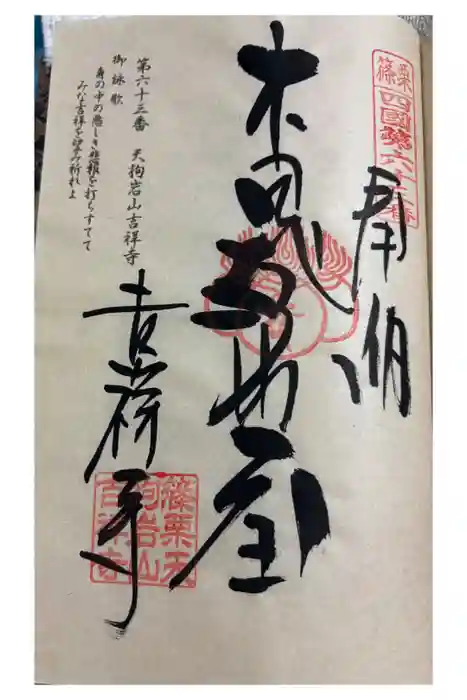 篠栗
四國第六十三番
奉納
第六十三番 天狗岩山吉祥寺
御詠歌
身の中の悪しき悲報を打ちすてて
みな吉祥を望み祈れよ
吉祥寺
篠栗天
狗岩山
吉祥寺